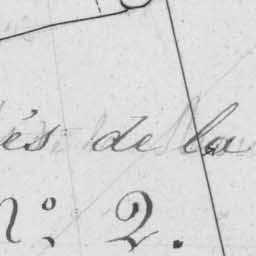 és de la
N°. 2.